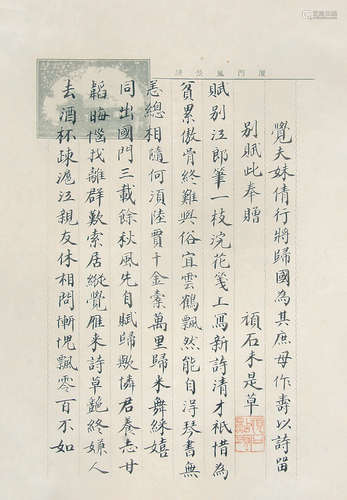 厦門風景牋
覺夫妹倩行將歸國為其庶母作壽以詩留
別賦此奉贈
頑石未是草
賦別江郎筆一枝浣花箋上寫新詩清才祇惜為
貧累傲骨終難與俗宜雲鶴飄然能自得琴書無
恙總相隨何須陸賈千金橐萬里歸來舞綵嬉
同出國門三載餘秋風先自賦歸歟憐君養志甘
韜晦惱我離群歎索居縱覺雁來詩草艷終嫌人
去酒杯疎滬江親友休相問慚愧飄零百不如